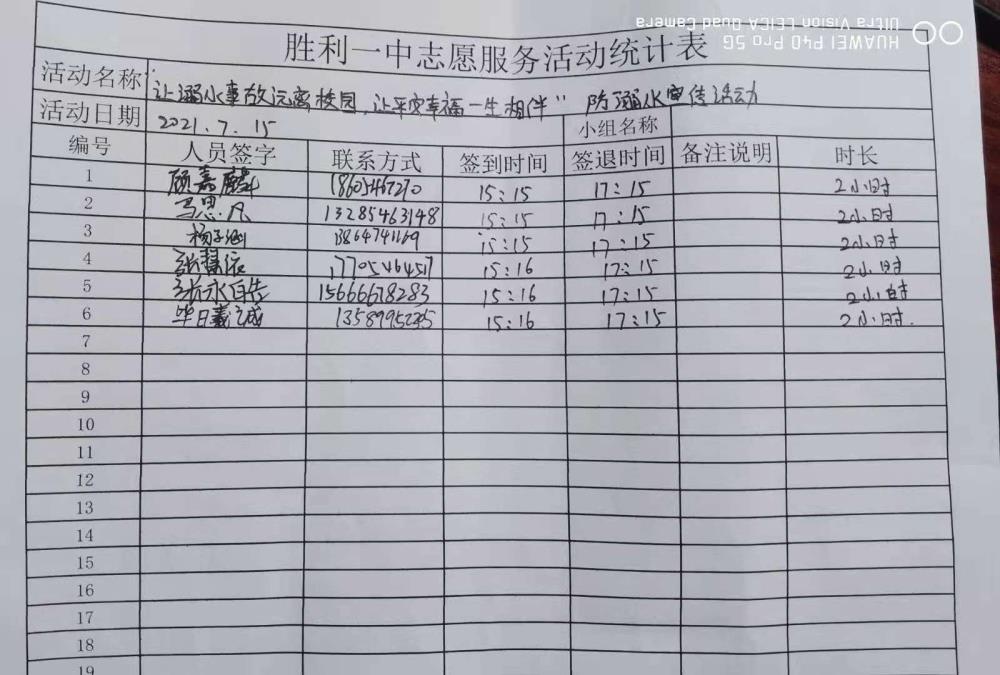 HUAWEI P40 Pro 5G
Ultra Vision LEICA Quad Camera
胜利一中志愿服务活动统计表
活动名称 "让溺水事故远离校园,让平安幸福一生相伴" 防溺水宣传活动
活动日期 2021.7.15 小组名称
编号 人员签字 联系方式 签到时间 签退时间 备注说明 时长
1 顾嘉麟 15:15 17:15 2小时
2 马思凡 13285463148 15:15 17:15 2小时
3 杨子涵 13864741169 15:15 17:15 2小时
4 17705464517 15:16 17:15 2小时
5 15666678283 15:16 17:15 2小时
6 15:16 17:15 2小时.
7
8
9
10
11
12
13
14
15
16
17
18
19